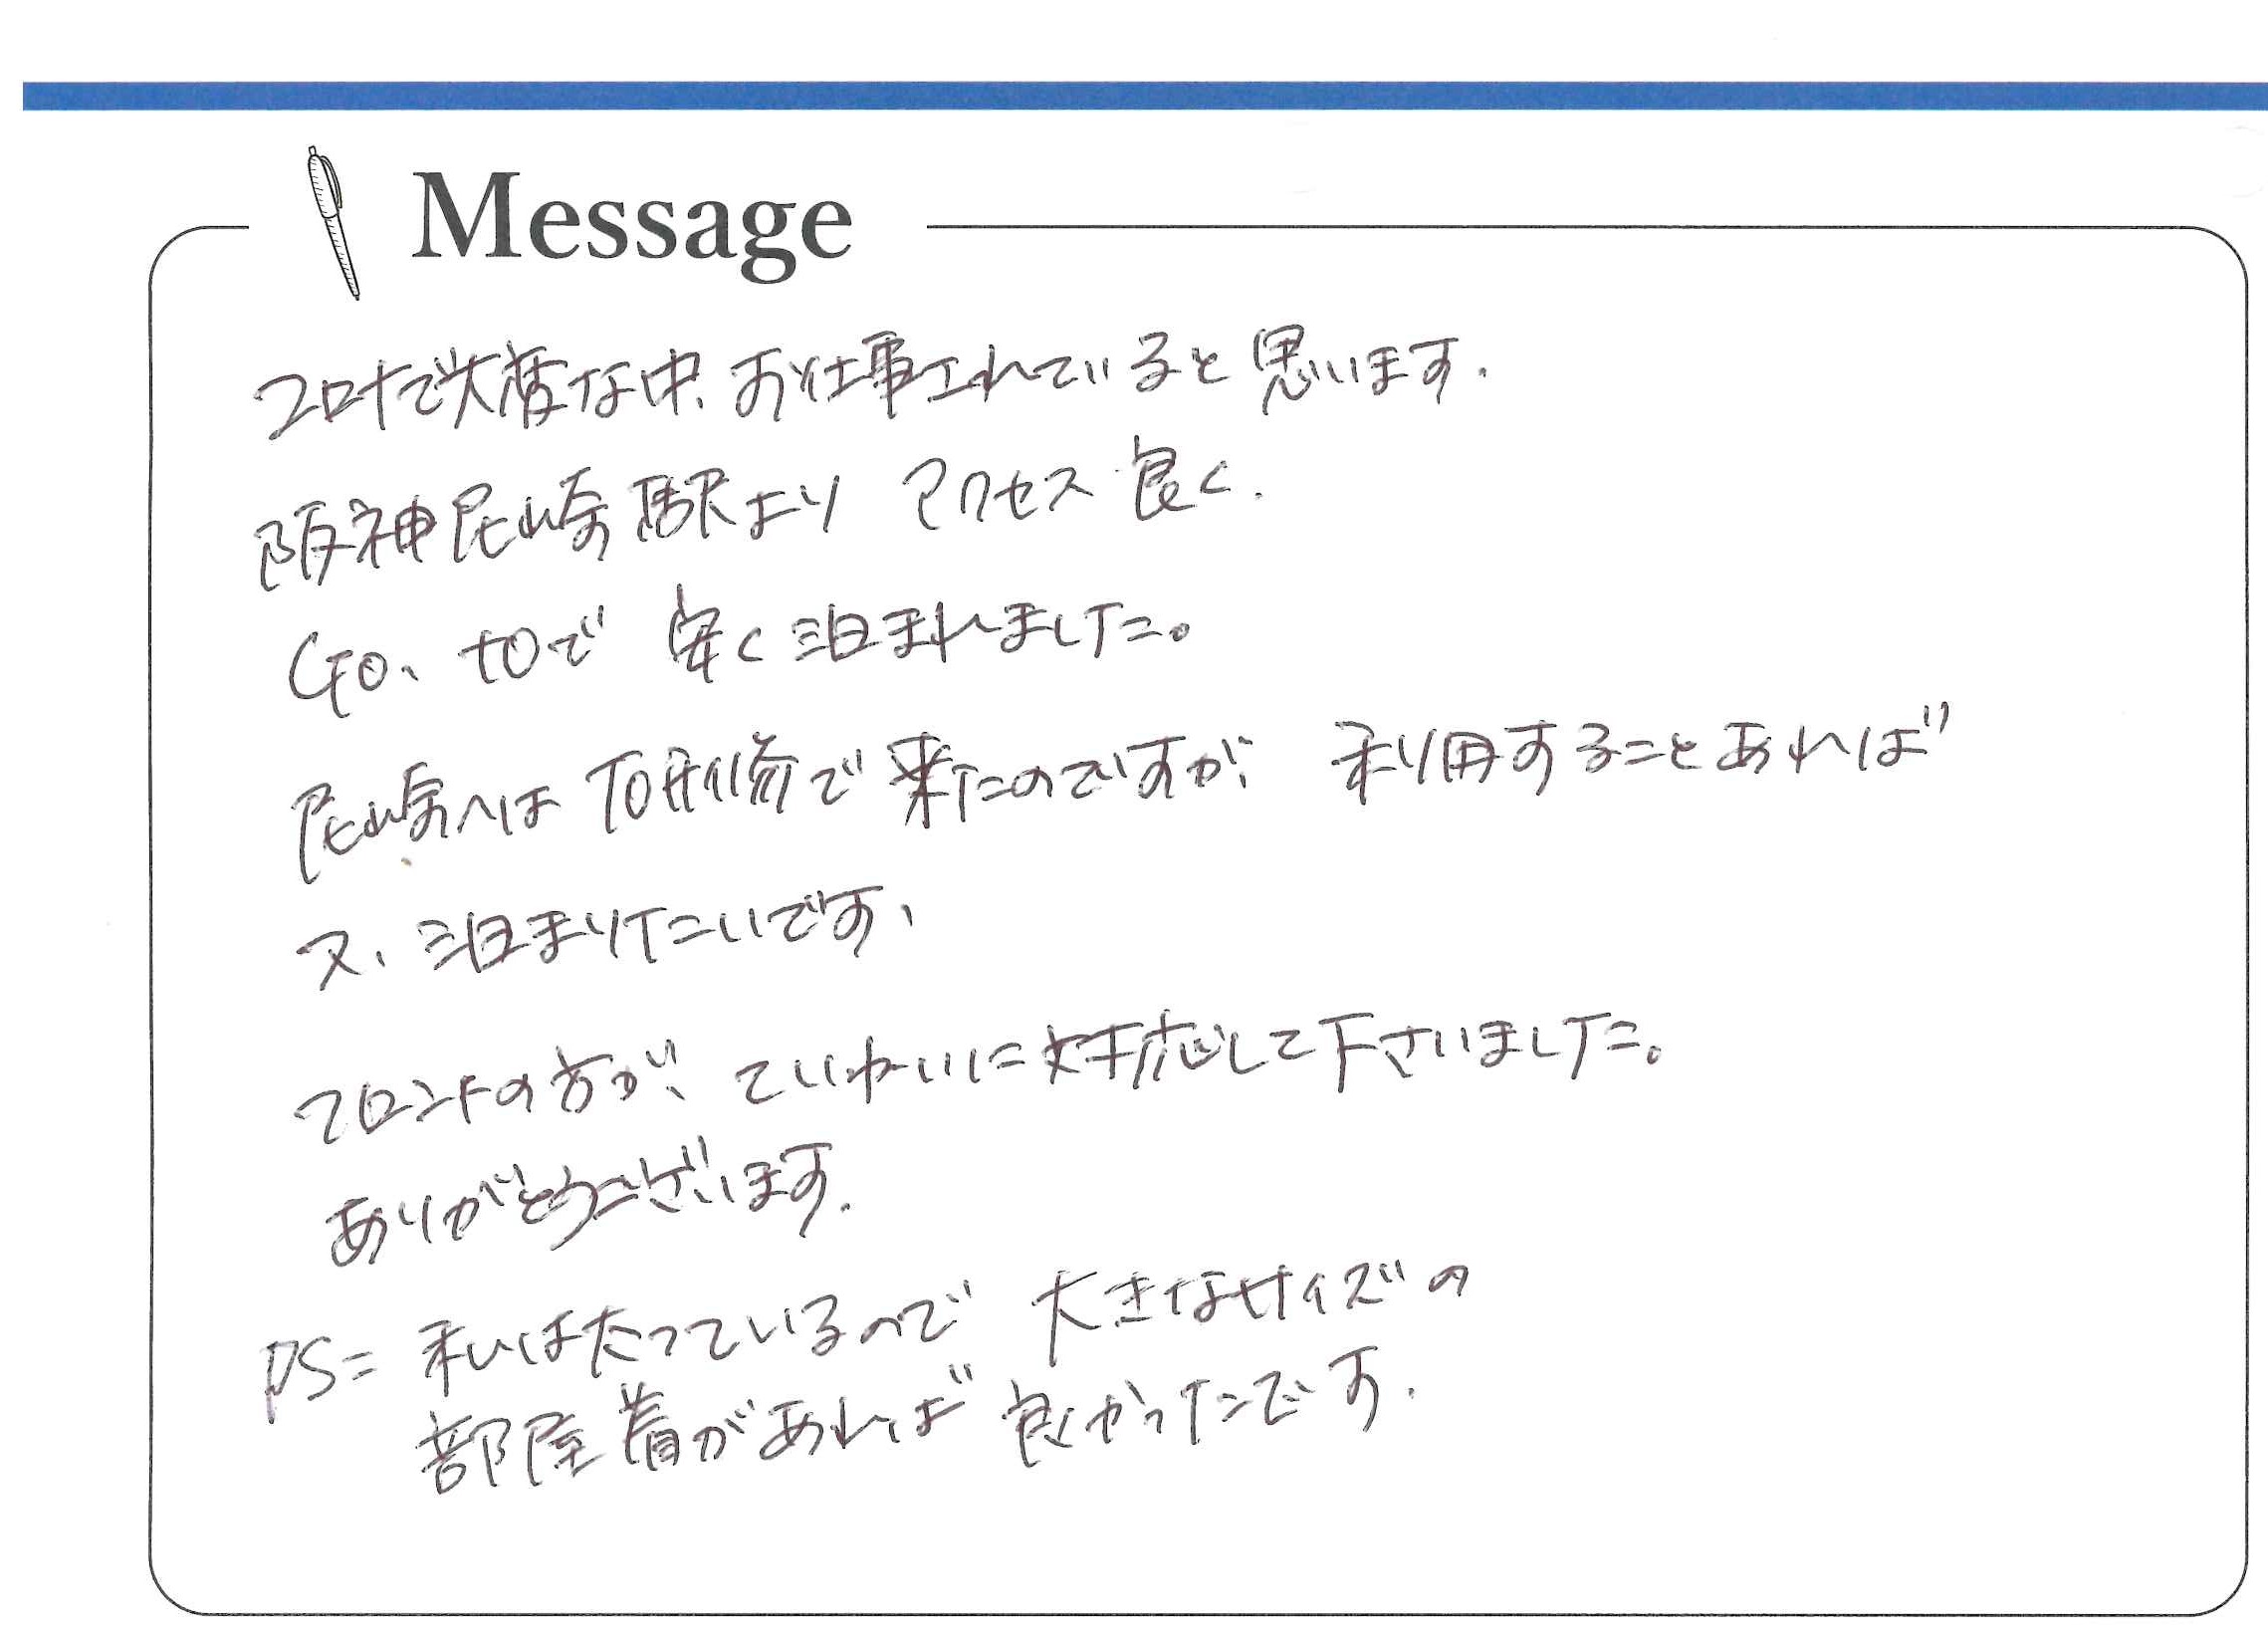 Message
コロナで大変な中、お仕事されていると思います.
阪神尼崎駅より アクセス良く.
GO、toで 安く泊まれました。
尼崎へは研修で来たのですが 利用することあれば
又、泊まりたいです、
フロントの方が、ていねいに対応して下さいました。
ありがとうございます.
PS= 私は太っているので 大きなサイズの
部屋着があれば良かったです.